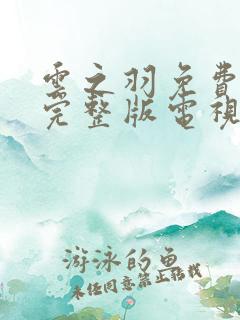 雲之羽免費
完整版電視
游泳的魚
未经同意禁止转载